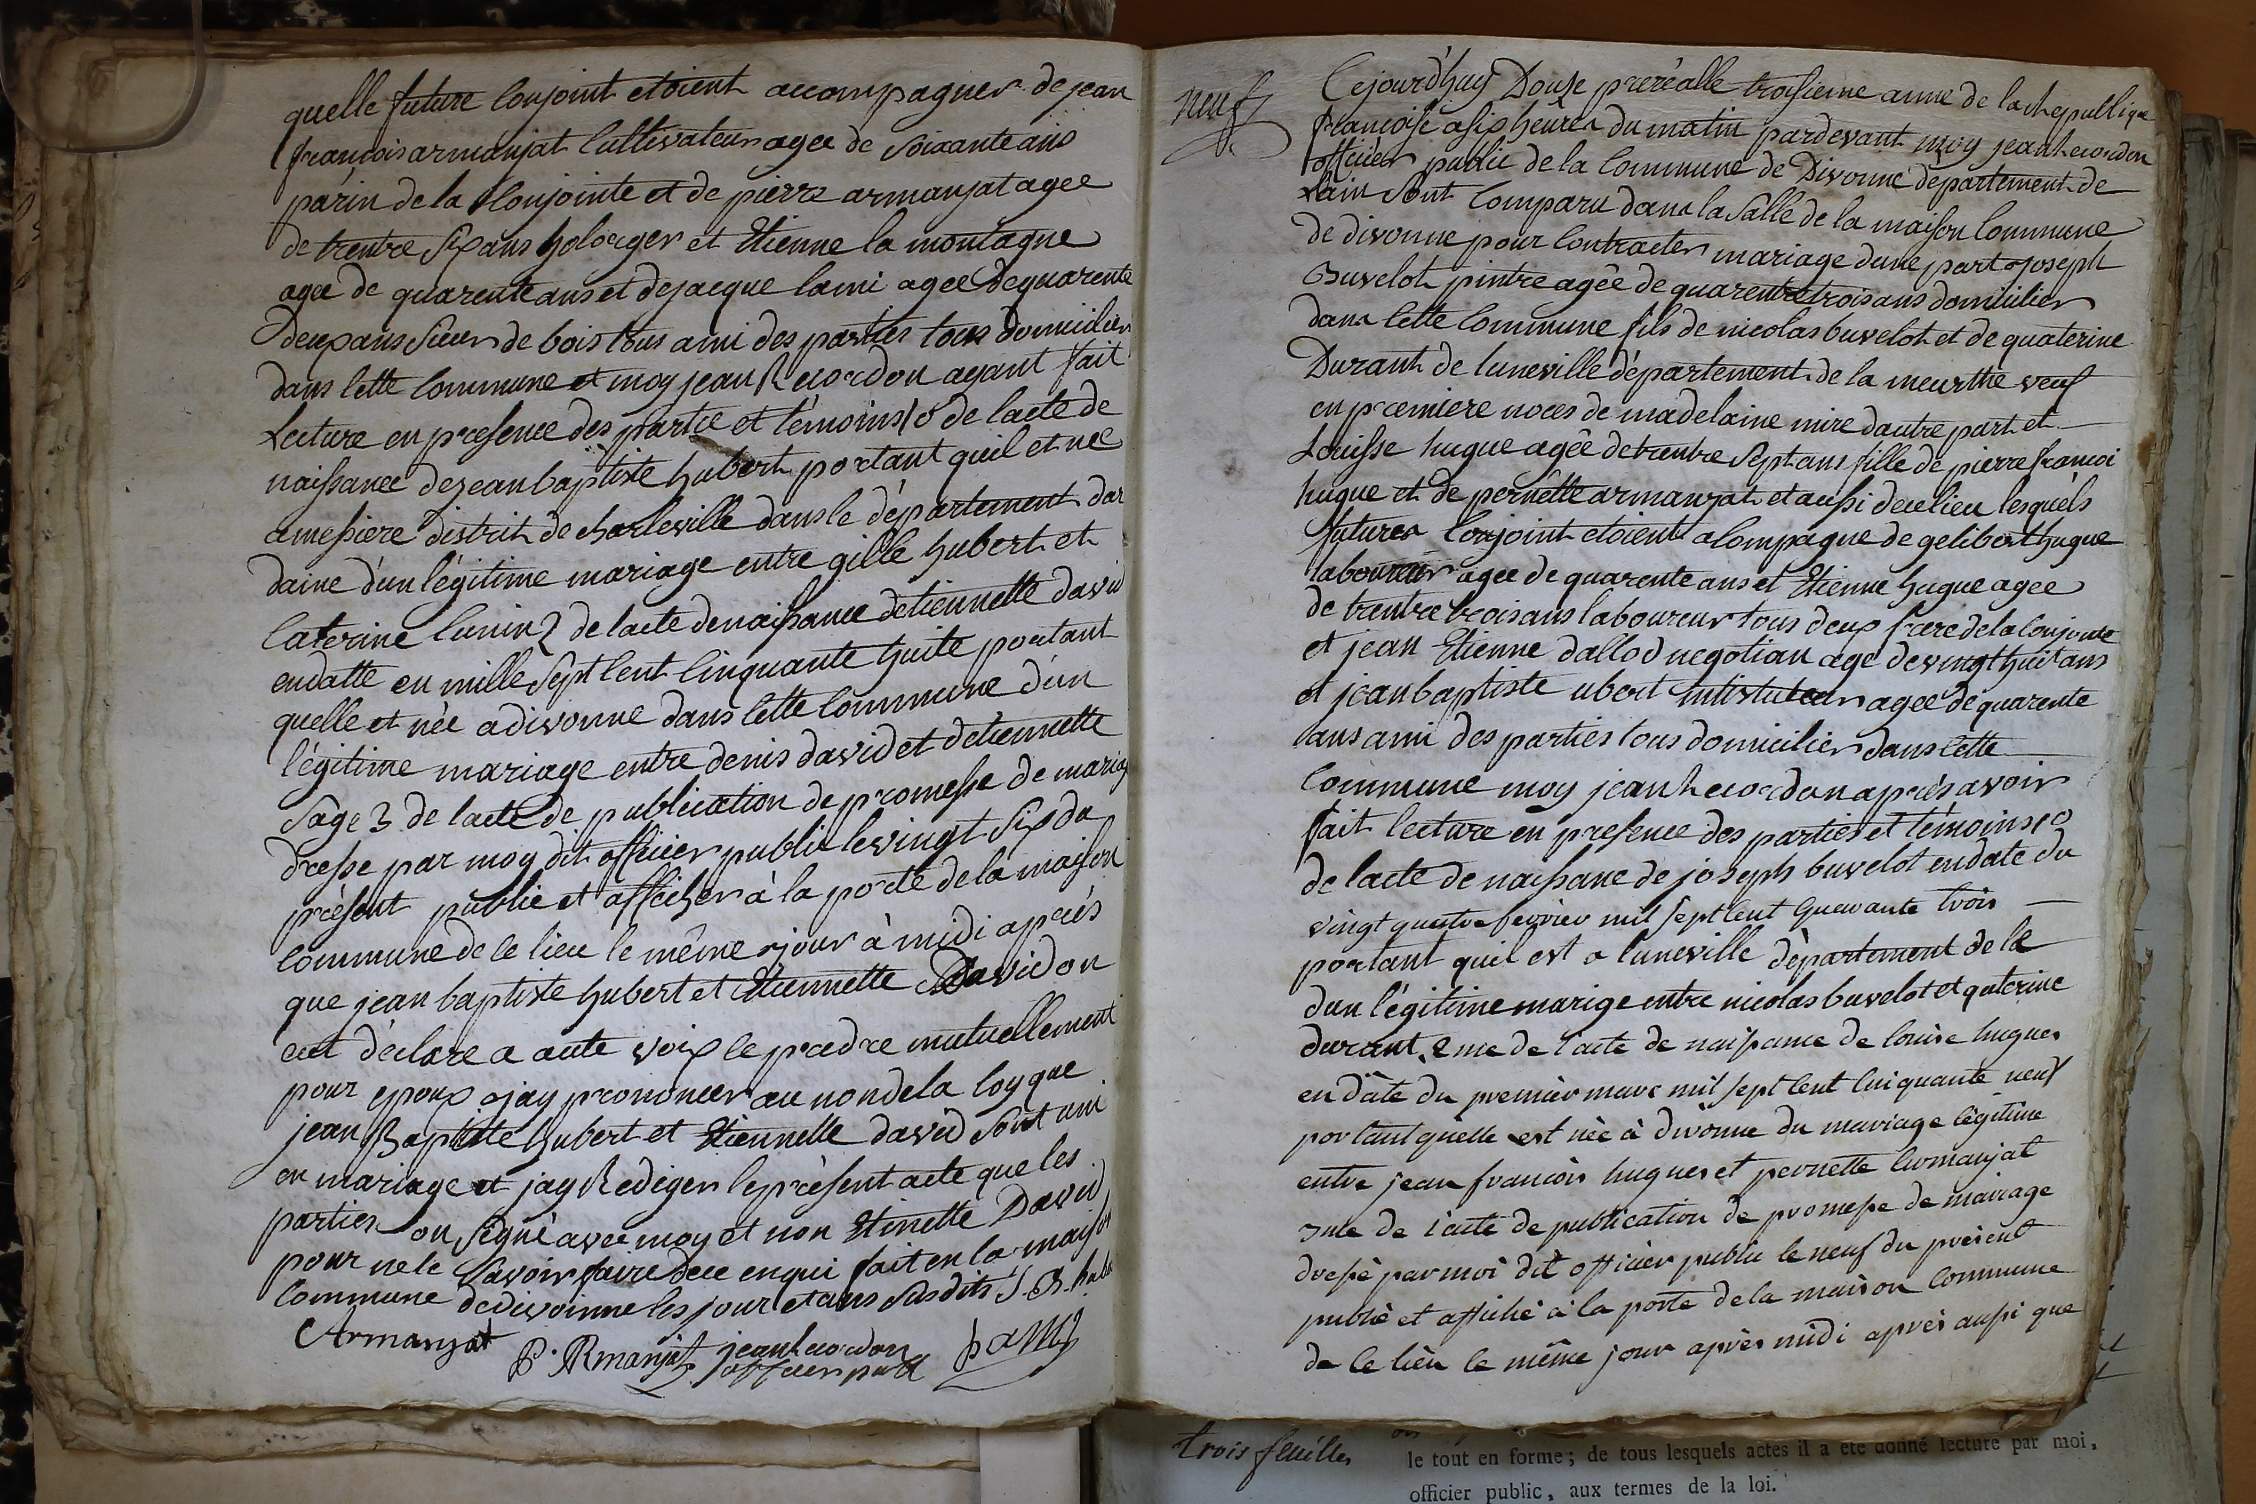 quelle future Conjoint etoient accompagner de jean
francois armanjat Cultivateur agee de soixante ans
parin de la Conjointe et de pierre armanjat agee
de trentre six ans holorger et Etienne la montagne
agee de quarente ans et de jacque lami agee de quarente
deux ans sieur de bois tous ami des parties tous domicilier
dans Cette Commune et moy jean Recordon ayant fait
Lecture en presence des partie et témoins 1o de lacte de
naissance de jean baptiste hubert portant quil et née
a messiere distrit de charleville dans le département dar
daine d'un légitime mariage entre gille hubert et
Caterine Cunin 2 de lacte de naissance detiennette david
en datte en mille sept Cent Cinquante huite portant
quelle et née a divonne dans Cette Commune d'un
légitime mariage entre denis david et detiennette
sage 3 de lacte de publication de promesse de mariag
dresse par moy dit officier public le vingt six du
présent publie et afficher à la porte de la maison
Commune de Ce lieu le même jour à midi aprés
que jean baptiste hubert et Etiennette David on
eut déclare a aute voix Ce predre mutuellement
pour epoux jay prononcer au non de la loy que
jean Baptiste hubert et Etiennette david sont uni
en mariage et jay Rediger le présent acte que les
parties on signé avec moy et non Etinette David
pour ne le savoir faire dece enqui fait en la maison
Commune de divoinne les jour et ans susdits J. B. hube
Armanjat P. Rmanjat jean Recordon Lamy
officier public
neuf
Cejourd'huy Douse preréalle troisieme anne de la Republique
francoise a six heures du matin pardevant moy jean Recordon
officier public de la Commune de Divonne département de
Lain sont Comparu dans la salle de la maison Commune
de divonne pour Contracter mariage dune part joseph
Buvelot pintre agée de quarentre trois ans domicilier
dans Cette Commune fils de nicolas buvelot et de quaterine
Durant de luneville département de la meurthe veuf
en premiere noces de madelaine mire dautre part et
Louisse hugue agée de trentre sept ans fille de pierre francoi
hugue et de pernette armanjat et aussi de ce lieu lesquels
futures Conjoint etoient acompagne de gelibert hugue
laboureur agee de quarente ans et Etienne hugue agee
de trentre trois ans laboureur tous deux frere de la Conjointe
et jean Etienne dallod negotian age de vingt huit ans
et jean baptiste ubert intistuteur agee de quarente
ans ami des parties tous domicilier dans Cette
Commune moy jean Recordon aprés avoir
fait lecture en presence des parties et témoins 1o
de lacte de naissane de joseph buvelot en date du
vingt quatre fevrier mil sept Cent Quarante trois
portant quil est a luneville département de la
dun légitime marige entre nicolas buvelot et quterine
durant, 2me de l'acte de naissance de louise hugues
en date du premier mars mil sept Cent Cinquante neuf
portant quelle est née à divonne du mariage légitime
entre jean francois hugues et pernette armanjat
3me de l'acte de publication de promesse de mairage
dressé par moi dit officier public le neuf du présent
publié et affiché à la porte de la maison Commune
de Ce lieu le même jour après midi après aussi que
trois feuilles
le tout en forme; de tous lesquels actes il a été donné lecture par moi,
officier public, aux termes de la loi.